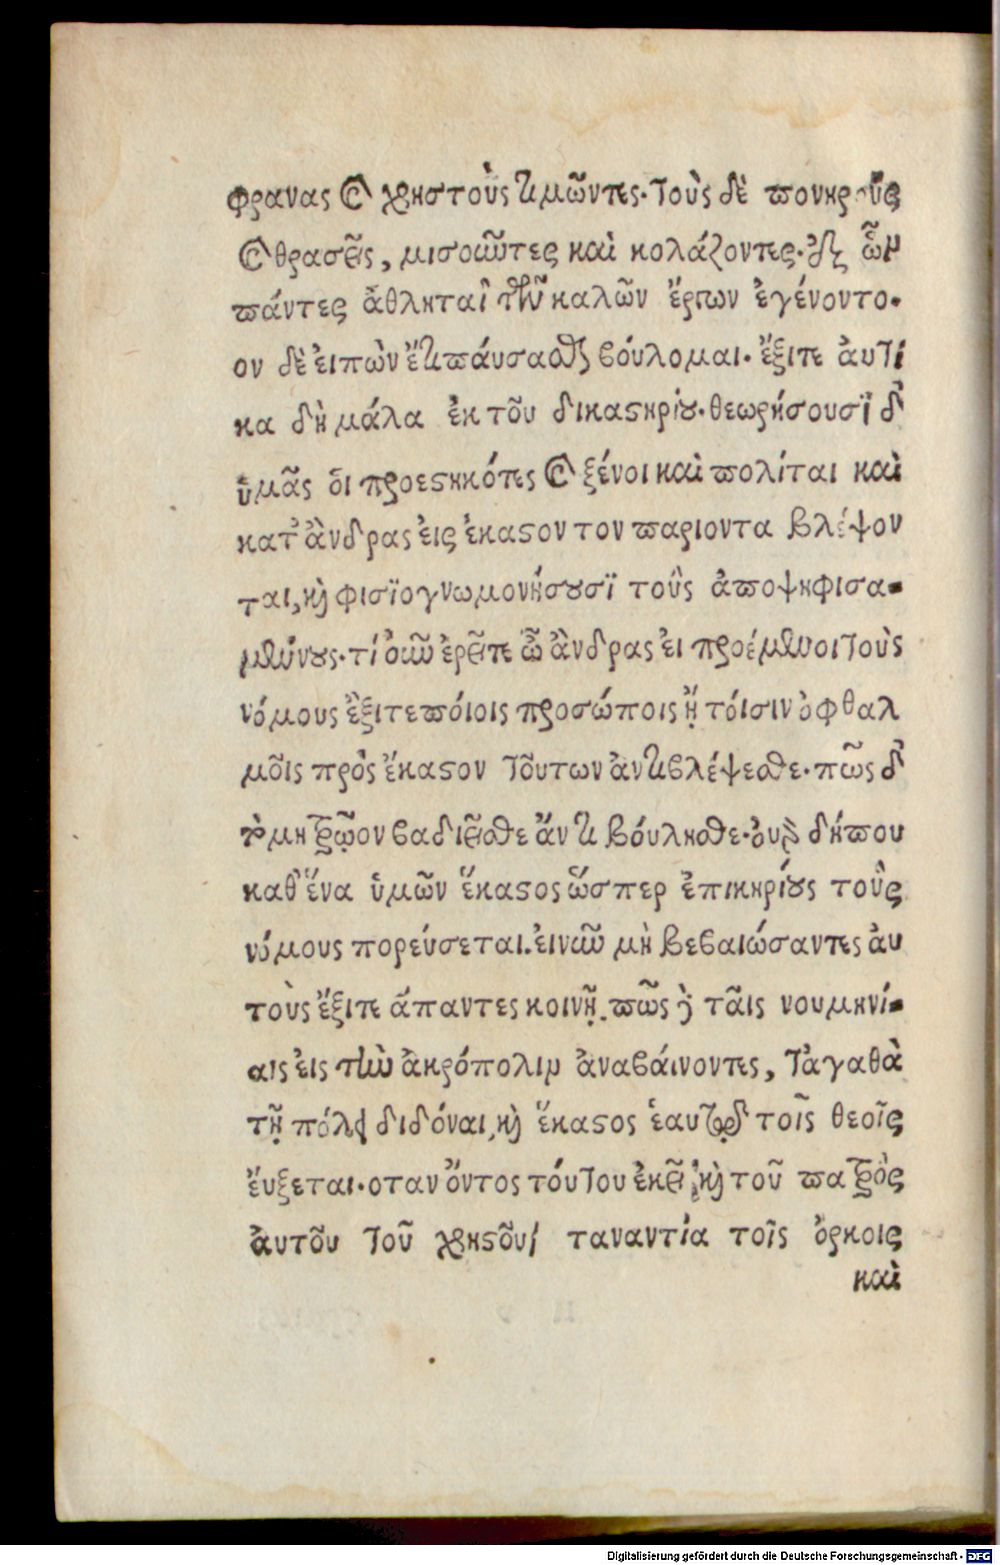 φρανας καὶ χρηστοὺς τιμῶντες. τοὺς δὲ πονηροὺς
καὶ θρασεῖς, μισοῦντες καὶ κολάζοντες. ἐξ ὧν
πάντες ἀθληταὶ τῶν καλῶν ἔργων ἐγένοντο.
ον δὲ ἐιπὼν ἔτι παύσασθαι βούλομαι. ἔξιτε ἀυτί
κα δὴ μάλα ἐκ τοῦ δικαστηρίου. θεωρήσουσϊ δ᾽
ὑμᾶς ὁι προεστηκότες καὶ ξένοι καὶ πολίται καὶ
κατ᾽ ἄνδρας ἐις ἐκαστον τον παριοντα βλέψον
ται, καὶ φισϊογνωμονήσουσϊ τοὺς ἀποψηφισα-
μένους. τί οὖν ἐρεῖτε ὦ ἄνδρας ἐι προέμενοι τοὺς
νόμους ἔξιτε πόιοις προσώποις ἢ τόισιν ὀφθαλ
μοῖς πρὸς ἕκαστον τοῦτων ἀντιβλέψεσθε. πῶς δ᾽
τὸ μητρῷον βαδιεῖσθε ἄν τι βόυλησθε. ὀυ γὰρ δήπου
καθ᾽ ἕνα ὑμῶν ἕκαστος ὥσπερ ἐπικηρίους τοὺς
νόμους πορεύσεται. ἐι νῦν μὴ βεβαιώσαντες ἀυ
τοὺς ἔξιτε ἅπαντες κοινῇ. πῶς δὲ ταῖς νουμηνί-
αις ἐις τὴν ἀκρόπολιν ἀναβάινοντες, τἀγαθὰ
τῇ πόλει διδόναι, καὶ ἕκαστος ἑαυτῷ τοῖς θεοῖς
ἔυξεται. οταν ὄντος τόυτου ἐκεῖ καὶ τοῦ πατρὸς
ἀυτοῦ τοῦ χρηστοῦ/ ταναντία τοῖς ὅρκοις
καὶ
Digitalisierung gefördert durch die Deutsche Forschungsgemeinschaft - DFG